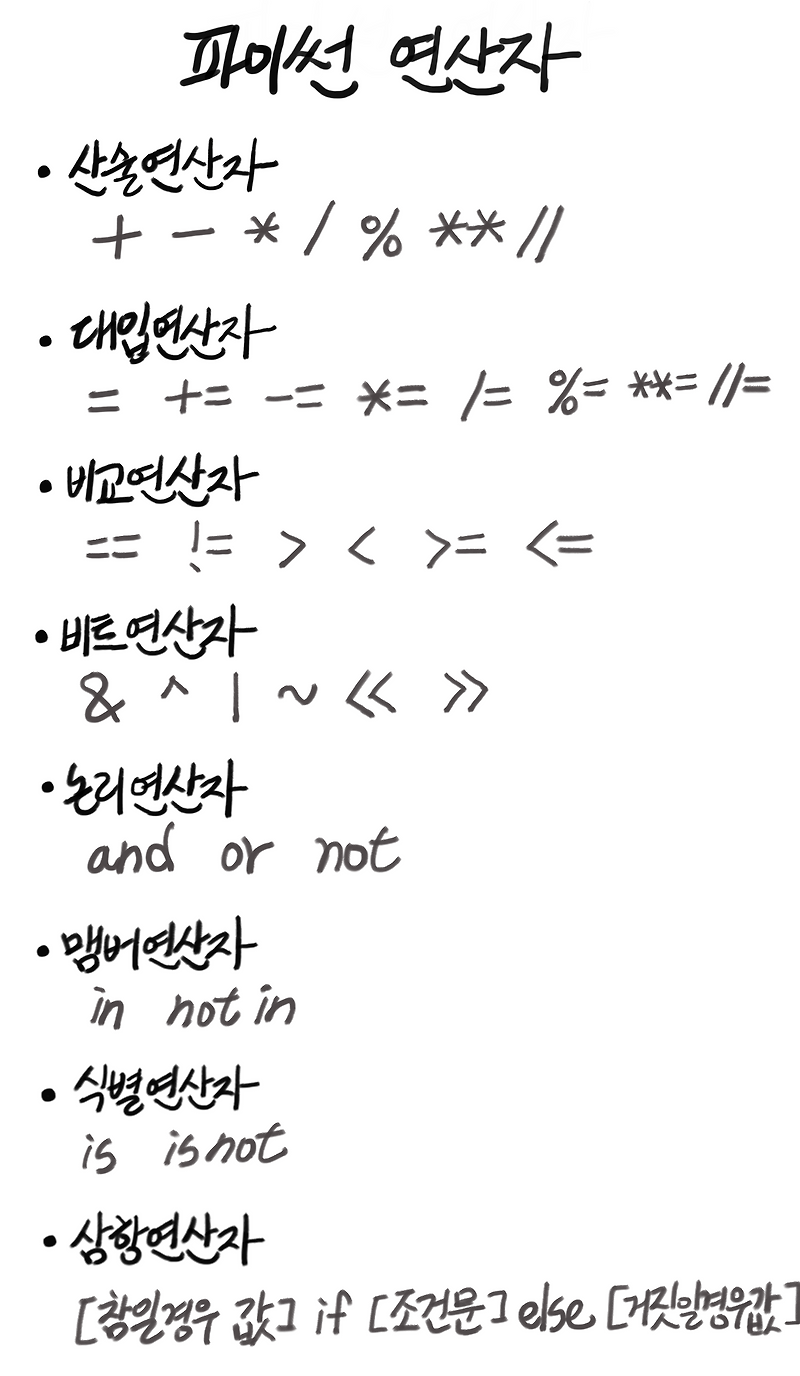 파이썬 연산자
• 산술연산자
+ - * / % ** //
• 대입연산자
= += -= *= /= %= **= //=
• 비교연산자
== != > < >= <=
• 비트연산자
& ^ | ~ << >>
• 논리연산자
and or not
• 맴버연산자
in not in
• 식별연산자
is is not
• 삼항연산자
[참일경우 값] if [조건문] else [거짓일경우값]